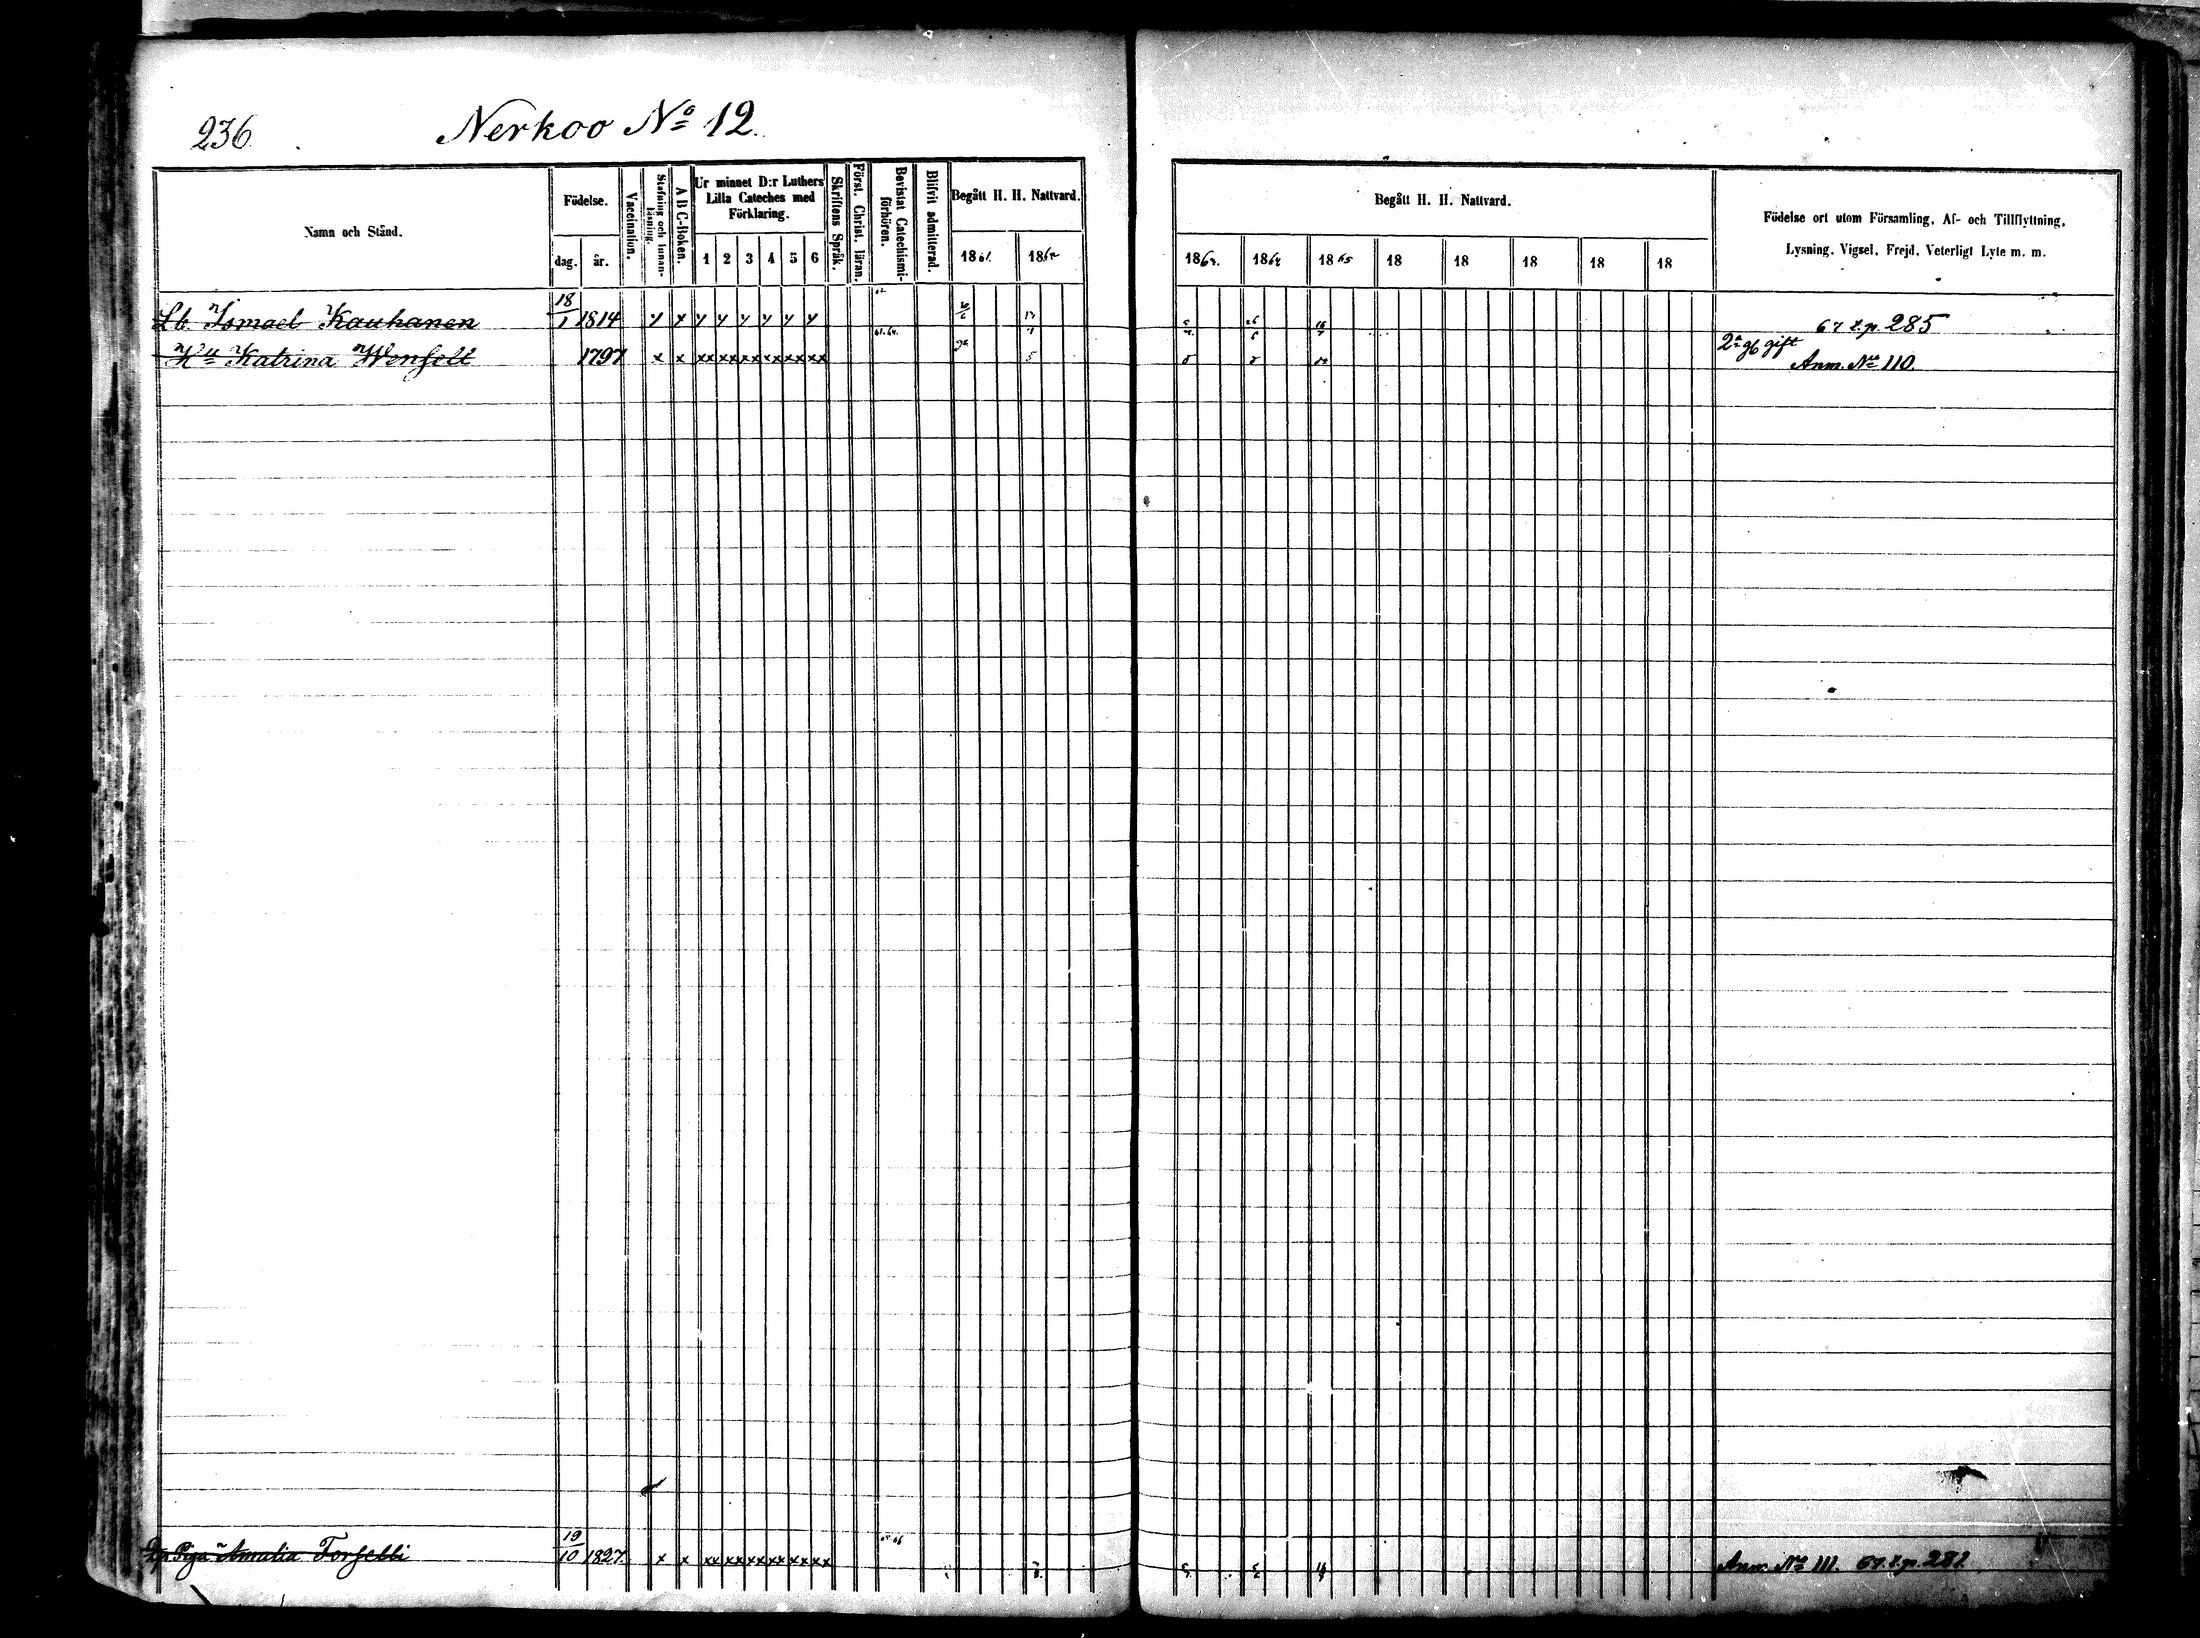 236.
Nerkoo No 12.
Namn och Stånd.
Födelse.
dag.
år.
Vaccination.
Stafning och Innanläsning.
A B C-Boken.
Ur minnet D:r Luthers Lilla Cateches med Förklaring.
1 2 3 4 5 6
Skriftens Språk.
Först. Christ. läran.
Bevistat Catechismiförhören.
Blifvit admitterad.
Begått H. H. Nattvard.
1861.
1862
Begått H. H. Nattvard.
1863. 1864 1865 18 18 18 18 18
Födelse ort utom Församling, Af- och Tillflyttning,
Lysning, Vigsel, Frejd, Veterligt Lyte m. m.
Lb. Ismael Kauhanen 18/1 1814 y y y y y y y y 67 t.p. 285
Hu Katrina Wenfelt 1797 x x xx xx xx xx xx xx 2a gg gift Anm. No 110.
Piga Amalia Forselli 19/10 1827. x x xx xx xx xx xx xx Anm. No 111. 67. t.p. 281.